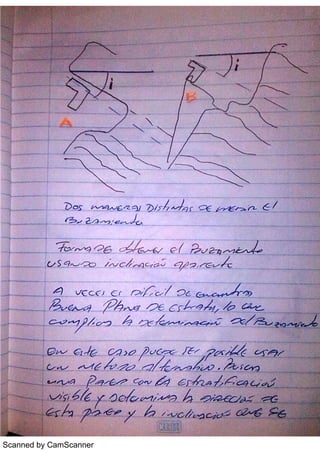 i
i
A
B
Dos maneras Distintas De medir El
Buzamiento
Forma De obtener el Buzamiento
usando inclinación aparente
A veces es dificil De encontrar
Buena Plano De estrato, lo que
complica la Determinación Del Buzamiento
En este caso puede ser posible usar
un metodo alternativo. Busca
una Pared con la estratificación
visible y Determina la Dirección De
esta pared y la inclinación que se
CARIBE
Scanned by CamScanner